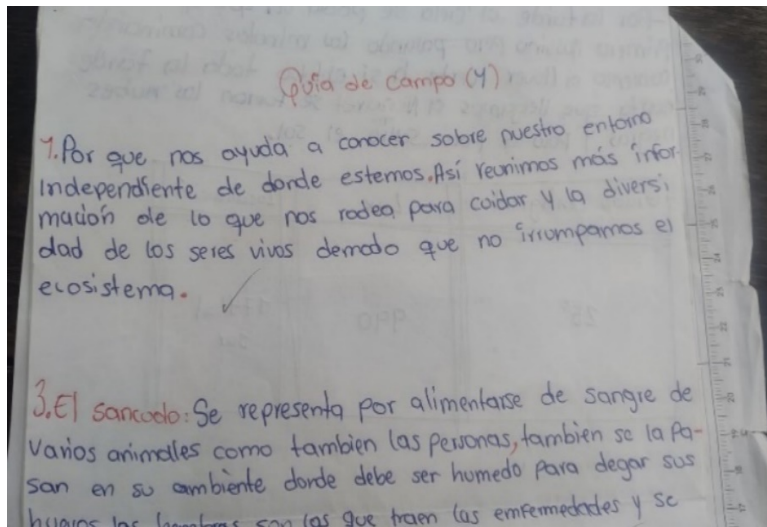 Guia de campo (4)
1. Por que nos ayuda a conocer sobre nuestro entorno
independiente de donde estemos. Así reunimos más infor
mación de lo que nos rodea para cuidar y la diversi
dad de los seres vivos demodo que no irrumpamos el
ecosistema.
3. El sancudo: Se representa por alimentarse de sangre de
varios animales como tambien las personas, tambien se la pa-
san en su ambiente donde debe ser humedo para degar sus
son las que traen las emfermedades y se